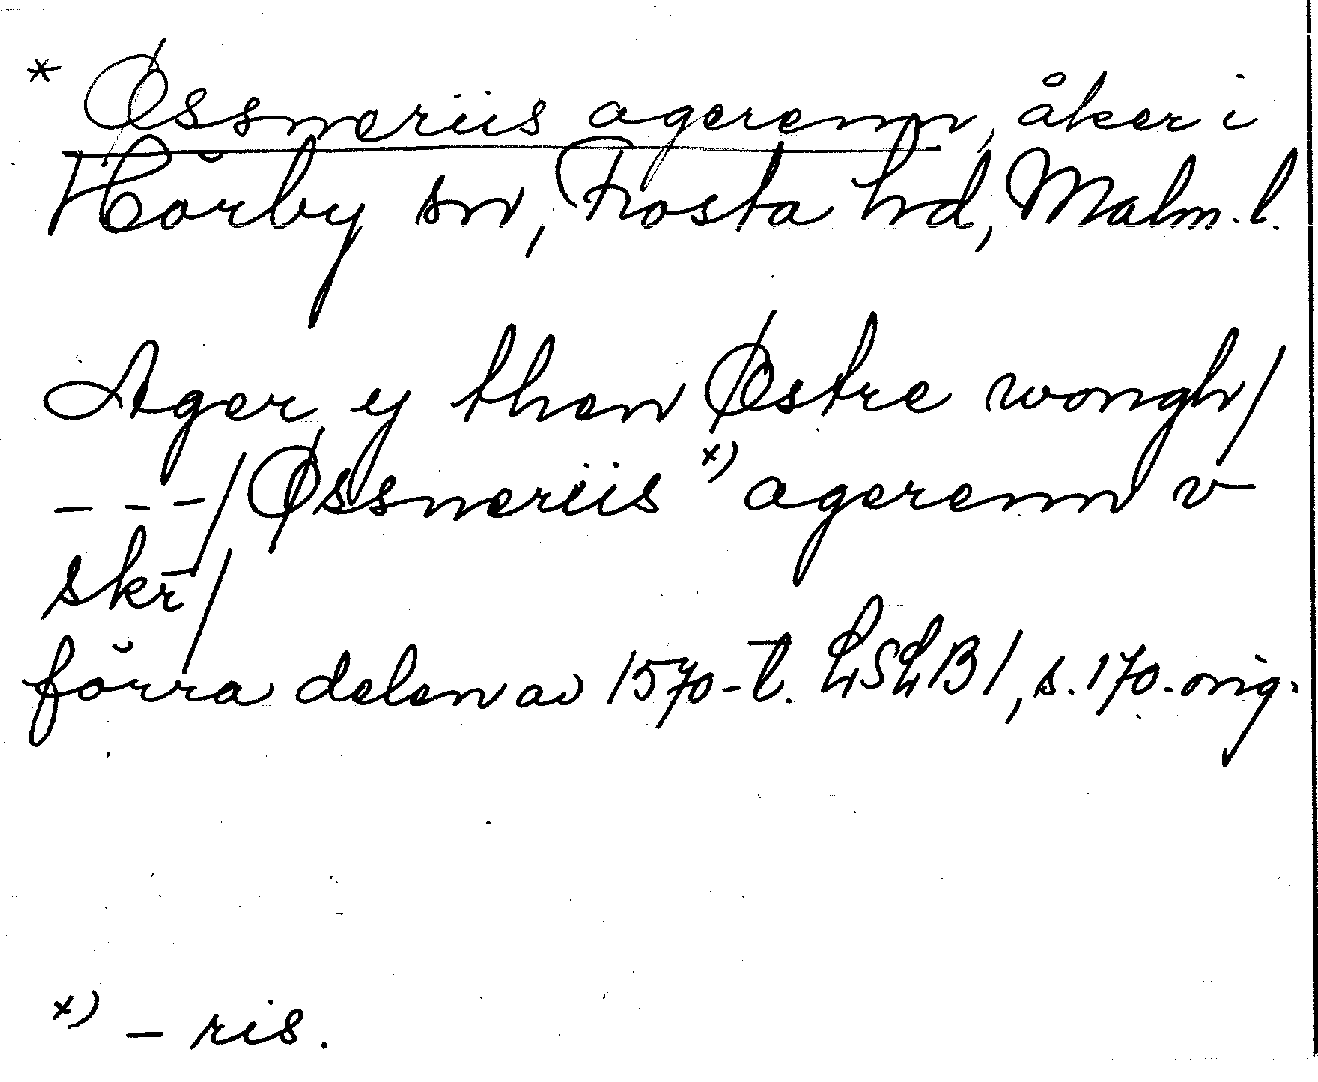 * Øssneriis agerenn, åker i
Hörby sn, Frosta hd, Malm. l.
Ager y then Østre wongh/
---/Øssneriis x) agerenn v
skr/
förra delen av 1570-t. LSLB1, s. 170. orig.
x) – ris.